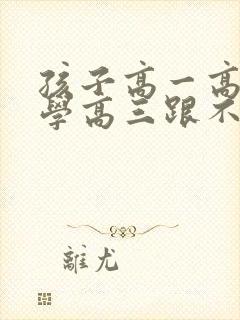 孩子高一高
學高三跟不
離尤